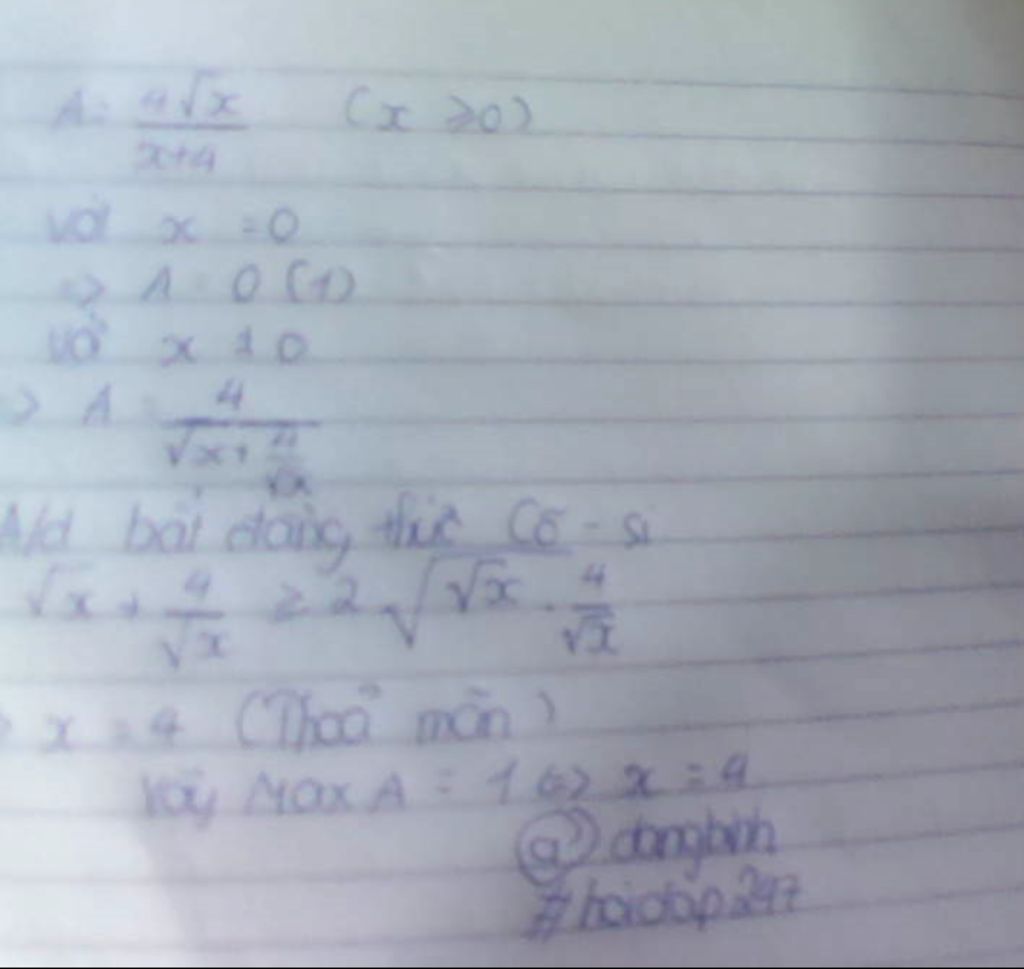 A = 4√x / x+4 (x ≥ 0)
với x = 0
=> A = 0 (1)
với x ≠ 0
=> A = 4 / √x + 4/√x
A/d bất đẳng thức Cô - si
√x + 4/√x ≥ 2√(√x . 4/√x)
=> x = 4 (Thoả mãn)
Vậy Max A = 1 <=> x = 4
@ dangbinh
#hoidap247